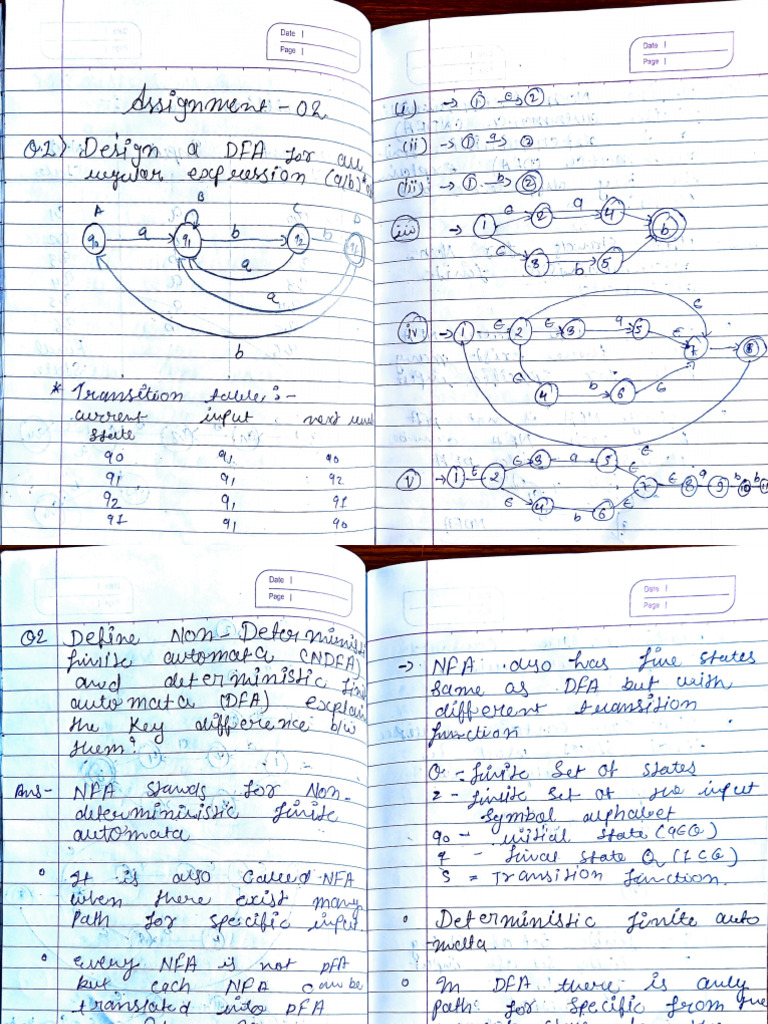 Date |
Page |
Assignment - 02
Q1) Design a DFA for
regular expression (a/b)*
A
B
C
q0
a
q1
b
q2
a
a
a
b
* Transition table :-
current
input
next
state
q0 q1 q0
q1 q1 q2
q2 q1 q1
q1 q0
Date |
Page |
(i) → 1 ε 2
(ii) → 1 a 2
(iii) → 1 b 2
iii → 1 2 a 4 6
ε 3 b 5
iv → 1 ε 2 ε 3 a 5 ε 7 8
ε
4 b 6 ε
v → 1 ε 2 ε 3 a 5 ε
7 ε 8 a 9 b 10 b 11
ε 4 b 6 ε
Date |
Page |
Q2 Define Non-Determinist
finite automata (NDFA)
and deterministic fini
automata (DFA) explain
the key difference b/w
them?
Ans- NFA stands for Non-
deterministic finite
automata
• It is also called NFA
when there exist many
path for specific input
• every NFA is not DFA
but each NFA can be
translated into DFA
Date |
Page |
→ NFA also has five states
same as DFA but with
different transition
function
Q = finite set of states
Σ - finite set of the input
symbol alphabet
q0 - initial state
- final state Q
= Transition function.
• Deterministic finite auto
mata.
• In DFA there is only
path for specific from the